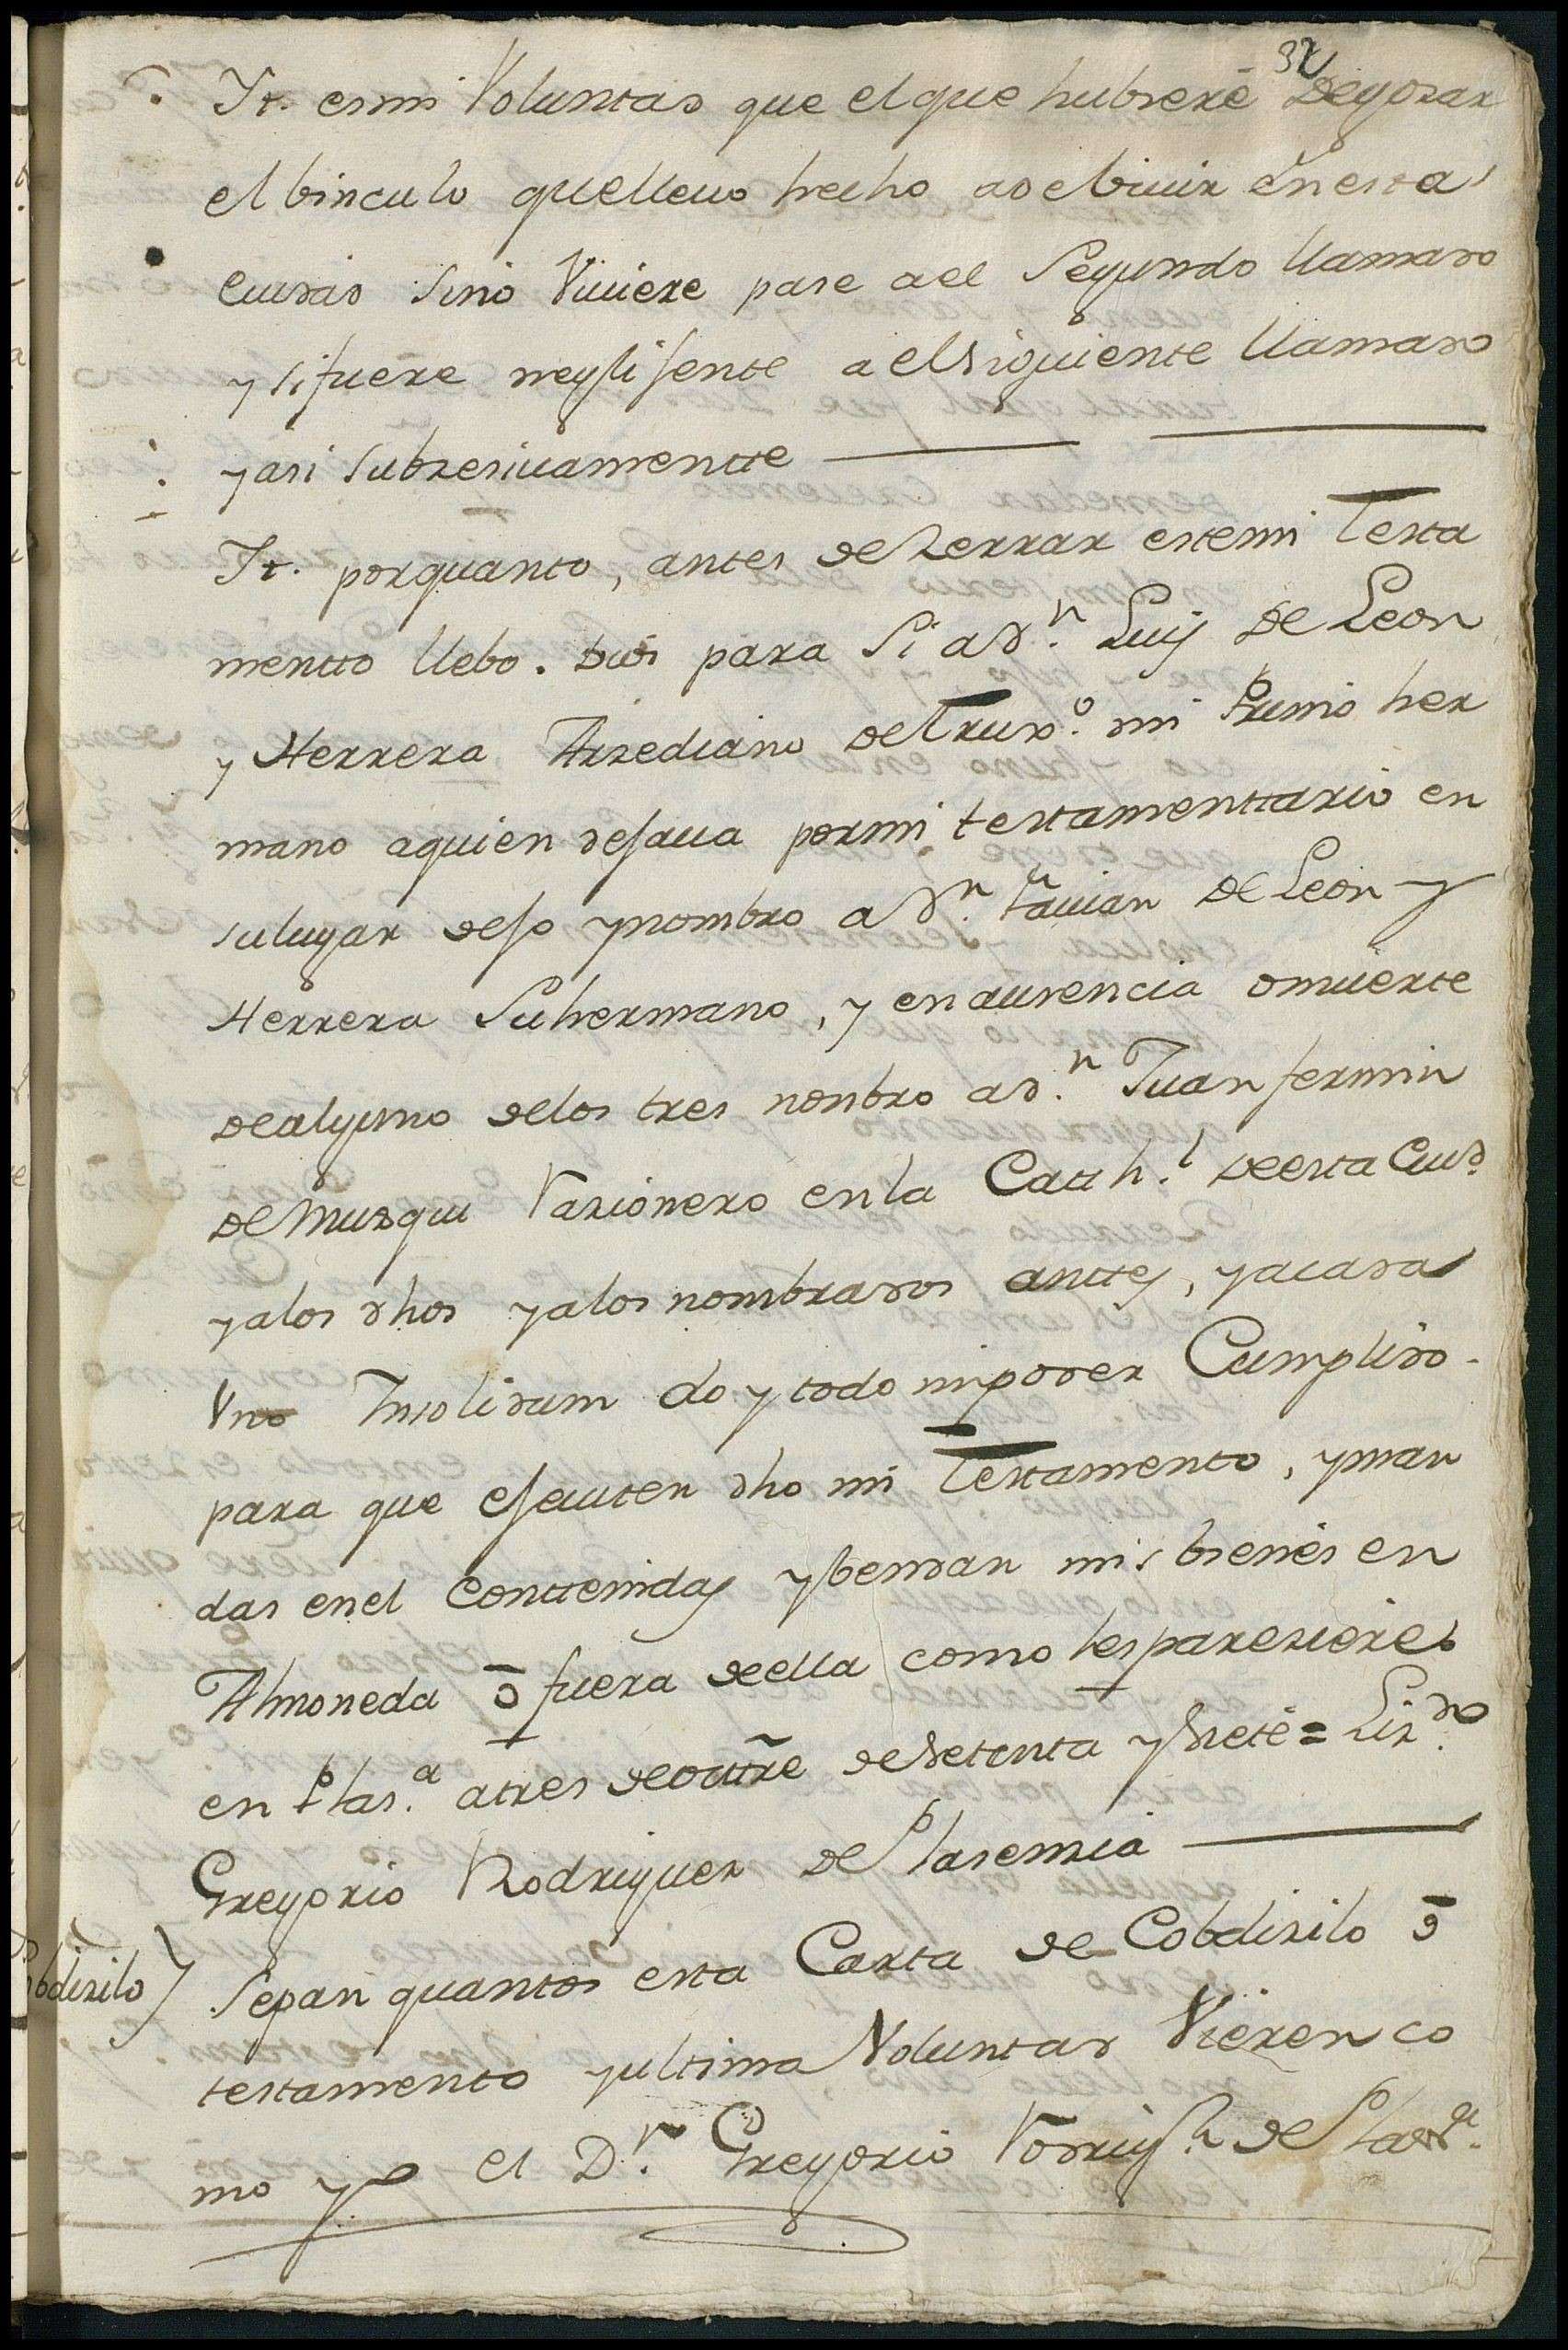 37
Yt. es mi Voluntad que el que hubiere de gozar
el binculo que lleuo hecho ad e biuir En esta
ciudad sino Viuiere pase a el Segundo llamado
y si fuere neglijente a el siguiente llamado
y asi subzesiuamentte
Yt. por quanto, antes de Zerrar este mi Testa
mentto llebo. Dios para Si a Dn. Luis de Leon
y Herrera Arzediano de Trux.o mi Primo her
mano a quien dejaua por mi testamenttario en
su lugar dejo y nombro a Dn. fauian de Leon y
Herrera Su hermano, y en ausencia o muerte
de alguno de los tres nonbro a d.n Juan fermin
de Muzqui Razionero en la Catth.l de esta Ciud.
y a los dhos y a los nombrados anttes, y a cada
Vno Insolidum doy todo mi poder Cumplido.
para que ejecuten dho mi Testamento, y man
das en el Conttenidas y bendan mis bienes en
Almoneda ō fuera de ella como les pareziere
en Plas.a a tres de octtre de Setenta y Siete = Liz.do
Gregorio Rodriguez de Plasenzia
obdizilo) Sepan quantos esta Carta de Cobdizilo ō
testamento y ultima Voluntad Vieren co
mo yo el D.r Gregorio Rodrig.z de Plas.a